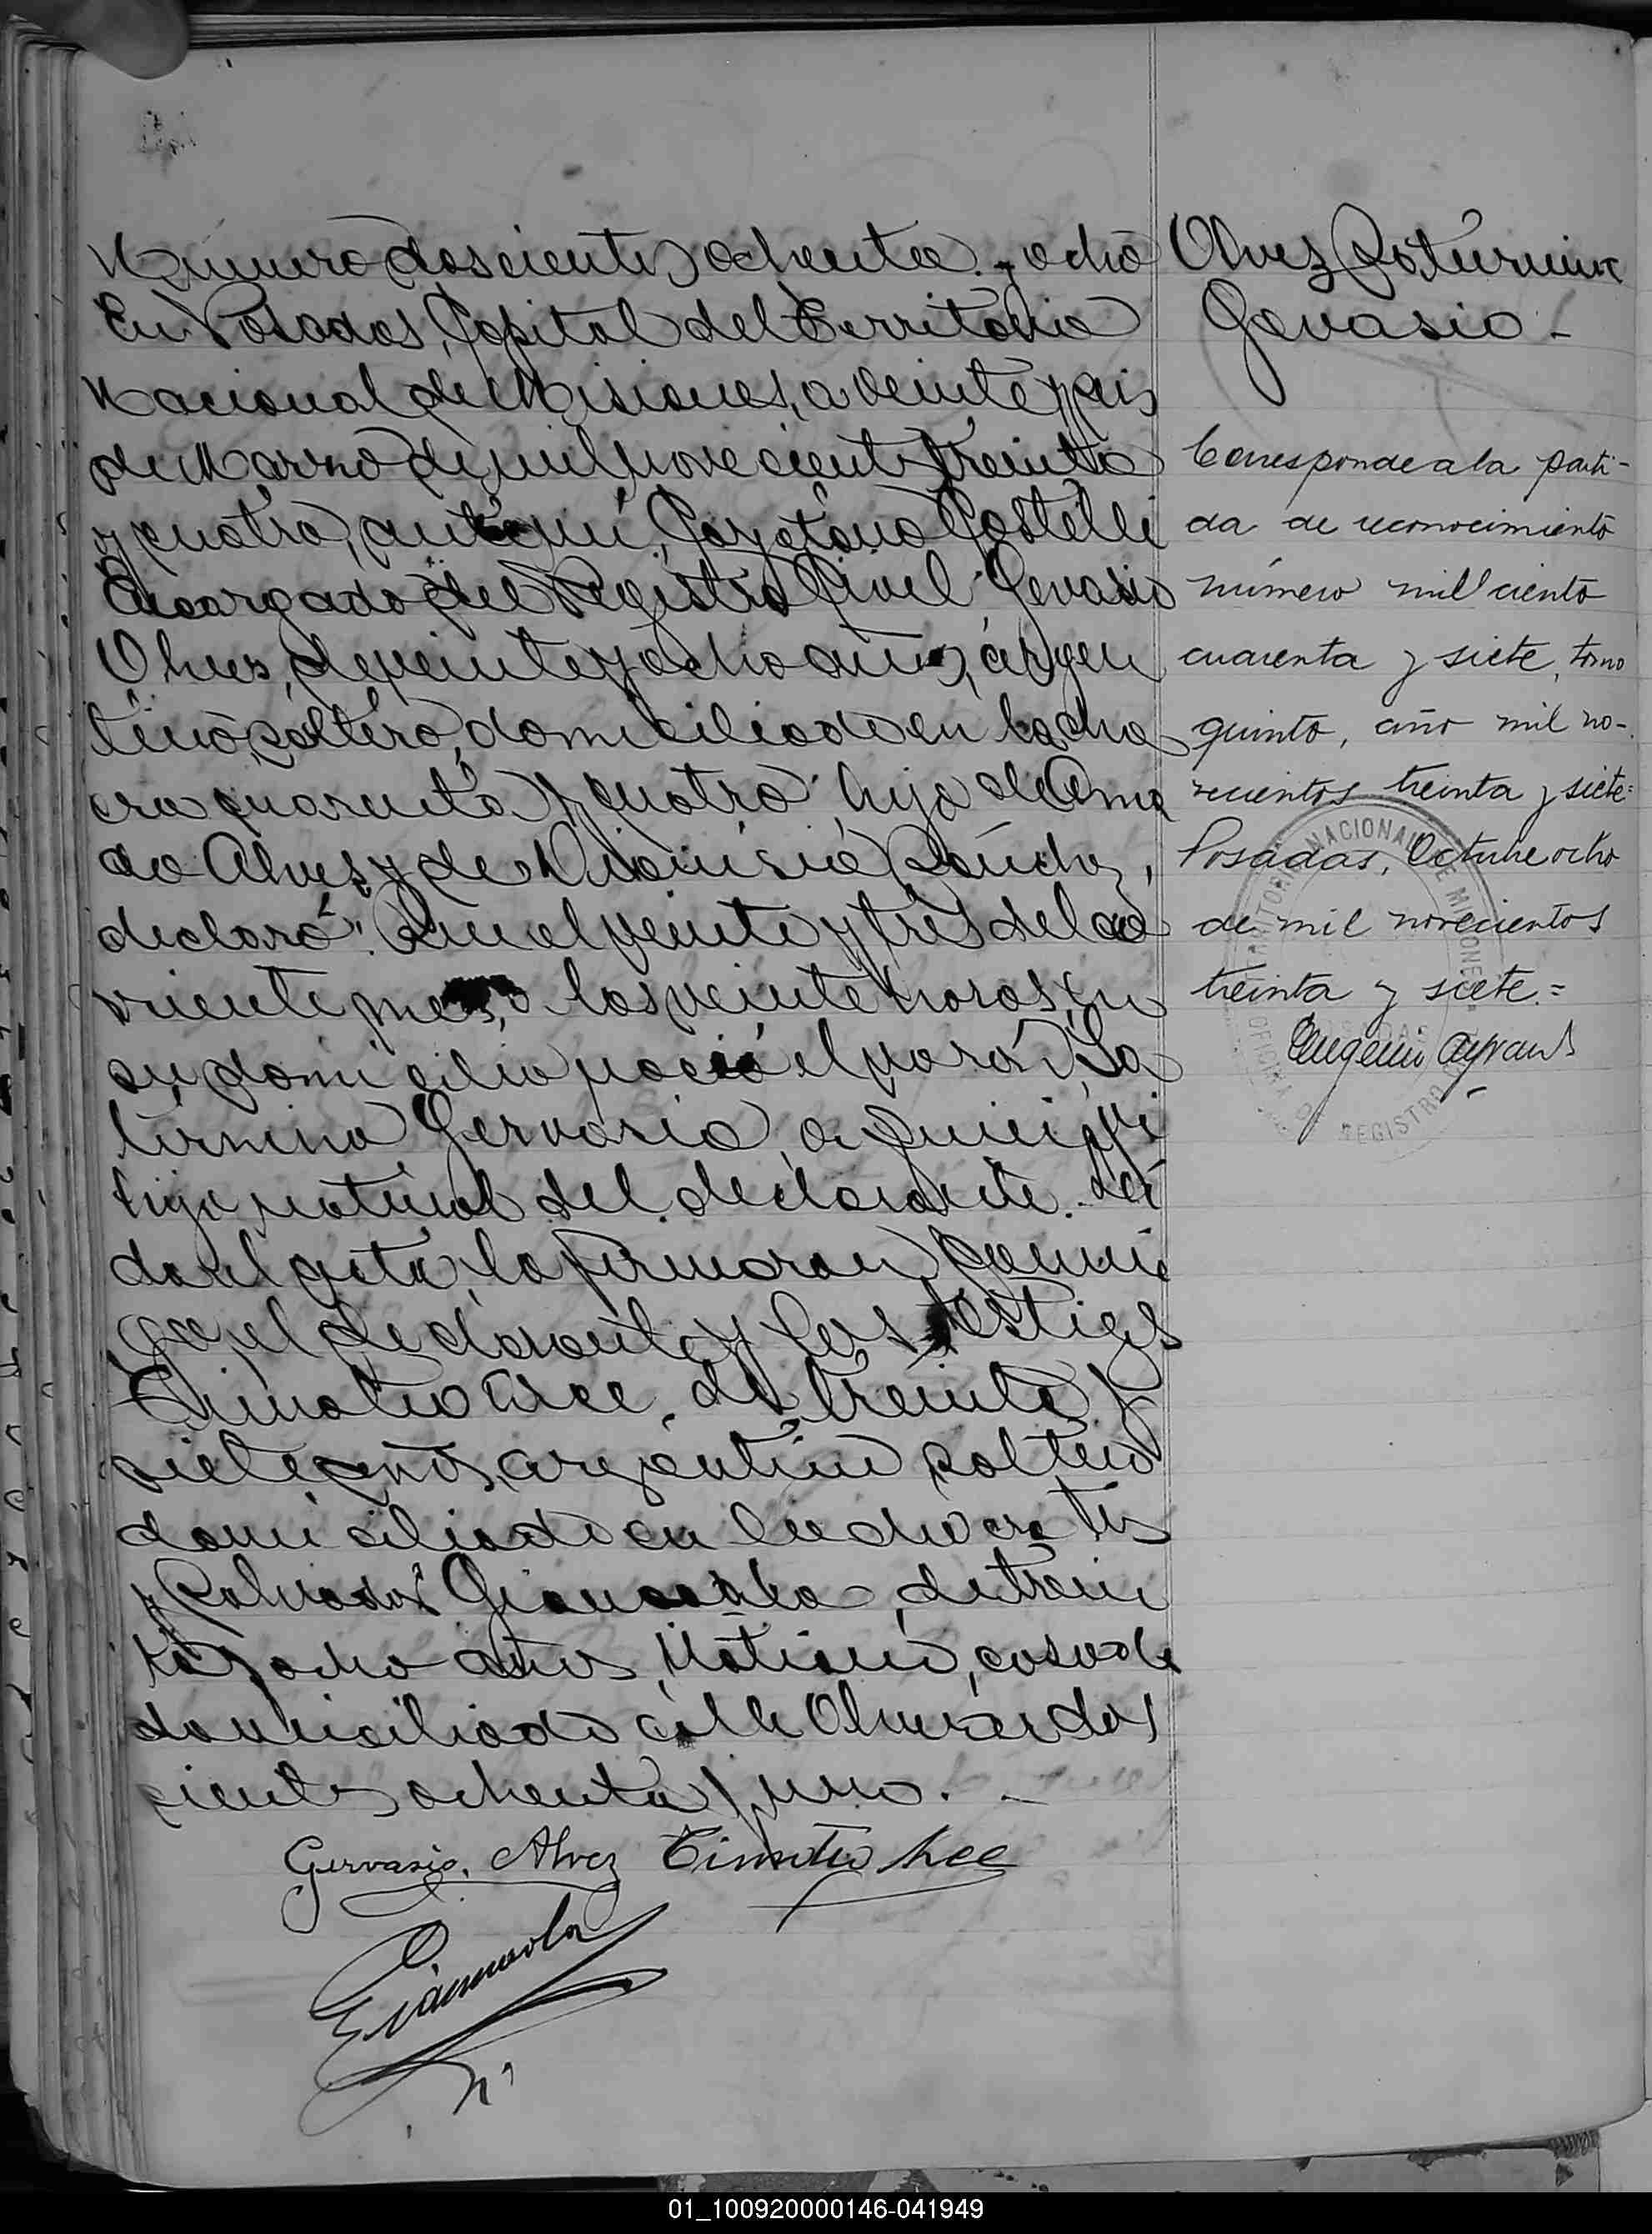 Número doscientos ochenta y ocho
En Posadas, Capital del Territorio
Nacional de Misiones, a veinte y seis
de Marzo de mil novecientos treinta
y cuatro, ante mí, Cayetano Castelli
Encargado del Registro Civil Gervasio
Alves, de veinte y ocho años, argen
tino, soltero, domiciliado en la cha
cra cuarenta y cuatro hijo de Ama
do Alves y de Dionisia Sánchez,
declaró: Que el veinte y tres del co
rriente mes, a las veinte horas, en
su domicilio nació el varón Sa
turnino Gervasio, a quien vi
hijo natural del declarante. Leí
da el acta, la firmaron conmi
go el declarante y los testigos
Timoteo Arce, de treinta y
siete años, argentino soltero
domiciliado en la chacra tres
y Salvador de trein
ta y ocho años, italiano, casado
domiciliado calle dos
cientos ochenta y uno.
Gervasio, Alvez Timoteo Arce
Alvez Saturnino
Gervasio -
Corresponde a la parti-
da de reconocimiento
número mil ciento
cuarenta y siete, tomo
quinto, año mil no-
vecientos treinta y siete=
Posadas, Octubre ocho
de mil novecientos
treinta y siete.=
Eugenio
TERRITORIO NACIONAL DE MISIONES
OFICINA DE REGISTRO
POSADAS
01_100920000146-041949